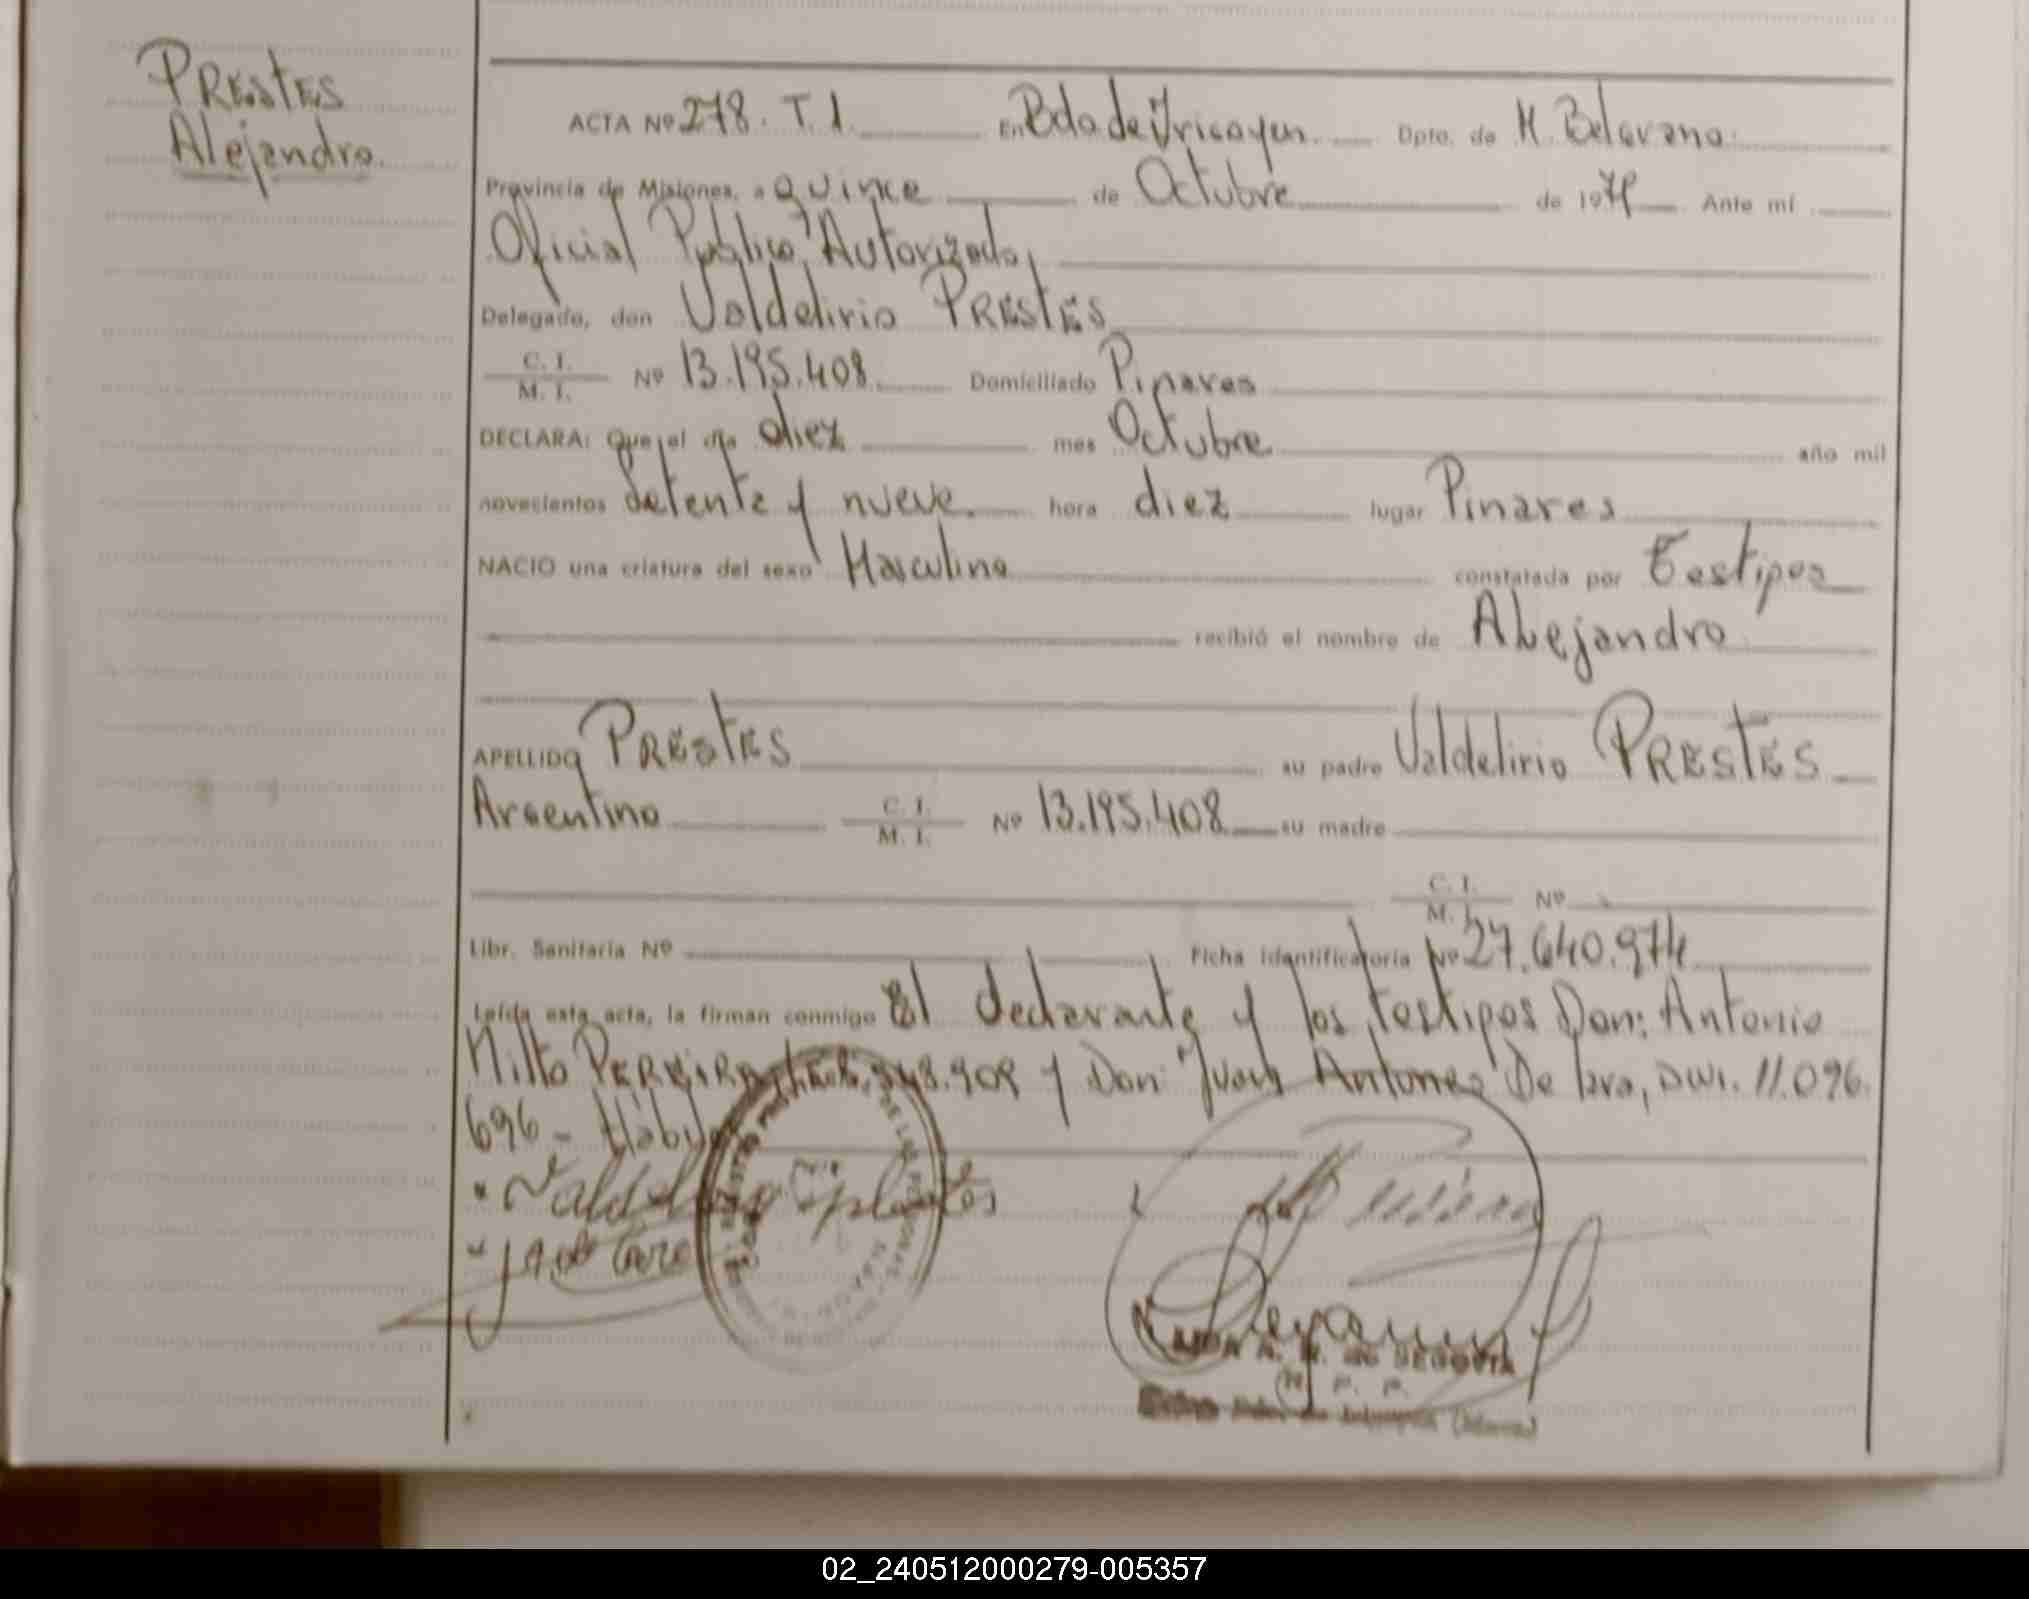 PRESTES
Alejandro
ACTA Nº 278. T. 1. En Bdo de Yrigoyen Dpto. de M. Belgrano
Provincia de Misiones, a quince de Octubre de 1979 Ante mí
Oficial Publico Autorizado,
Delegado, don Valdelirio PRESTES
C. I.
M. I. Nº 13.195.408 Domiciliado Pinares
DECLARA: Que el día diez mes Octubre año mil
novecientos setenta y nueve hora diez lugar Pinares
NACIO una criatura del sexo Masculino constatada por Testigos
recibió el nombre de Alejandro
APELLIDO PRESTES su padre Valdelirio PRESTES
Argentino C. I. M. I. Nº 13.195.408 su madre
C. I.
M. I. Nº
Libr. Sanitaria Nº Ficha identificatoria Nº 27.640.974
Leída esta acta, la firman conmigo El declarante y los testigos Don: Antonio
Milto PEREIRA y Don Juan Antones De Lara, DNI. 11.096.
696
DE SEGOVIA
02_240512000279-005357